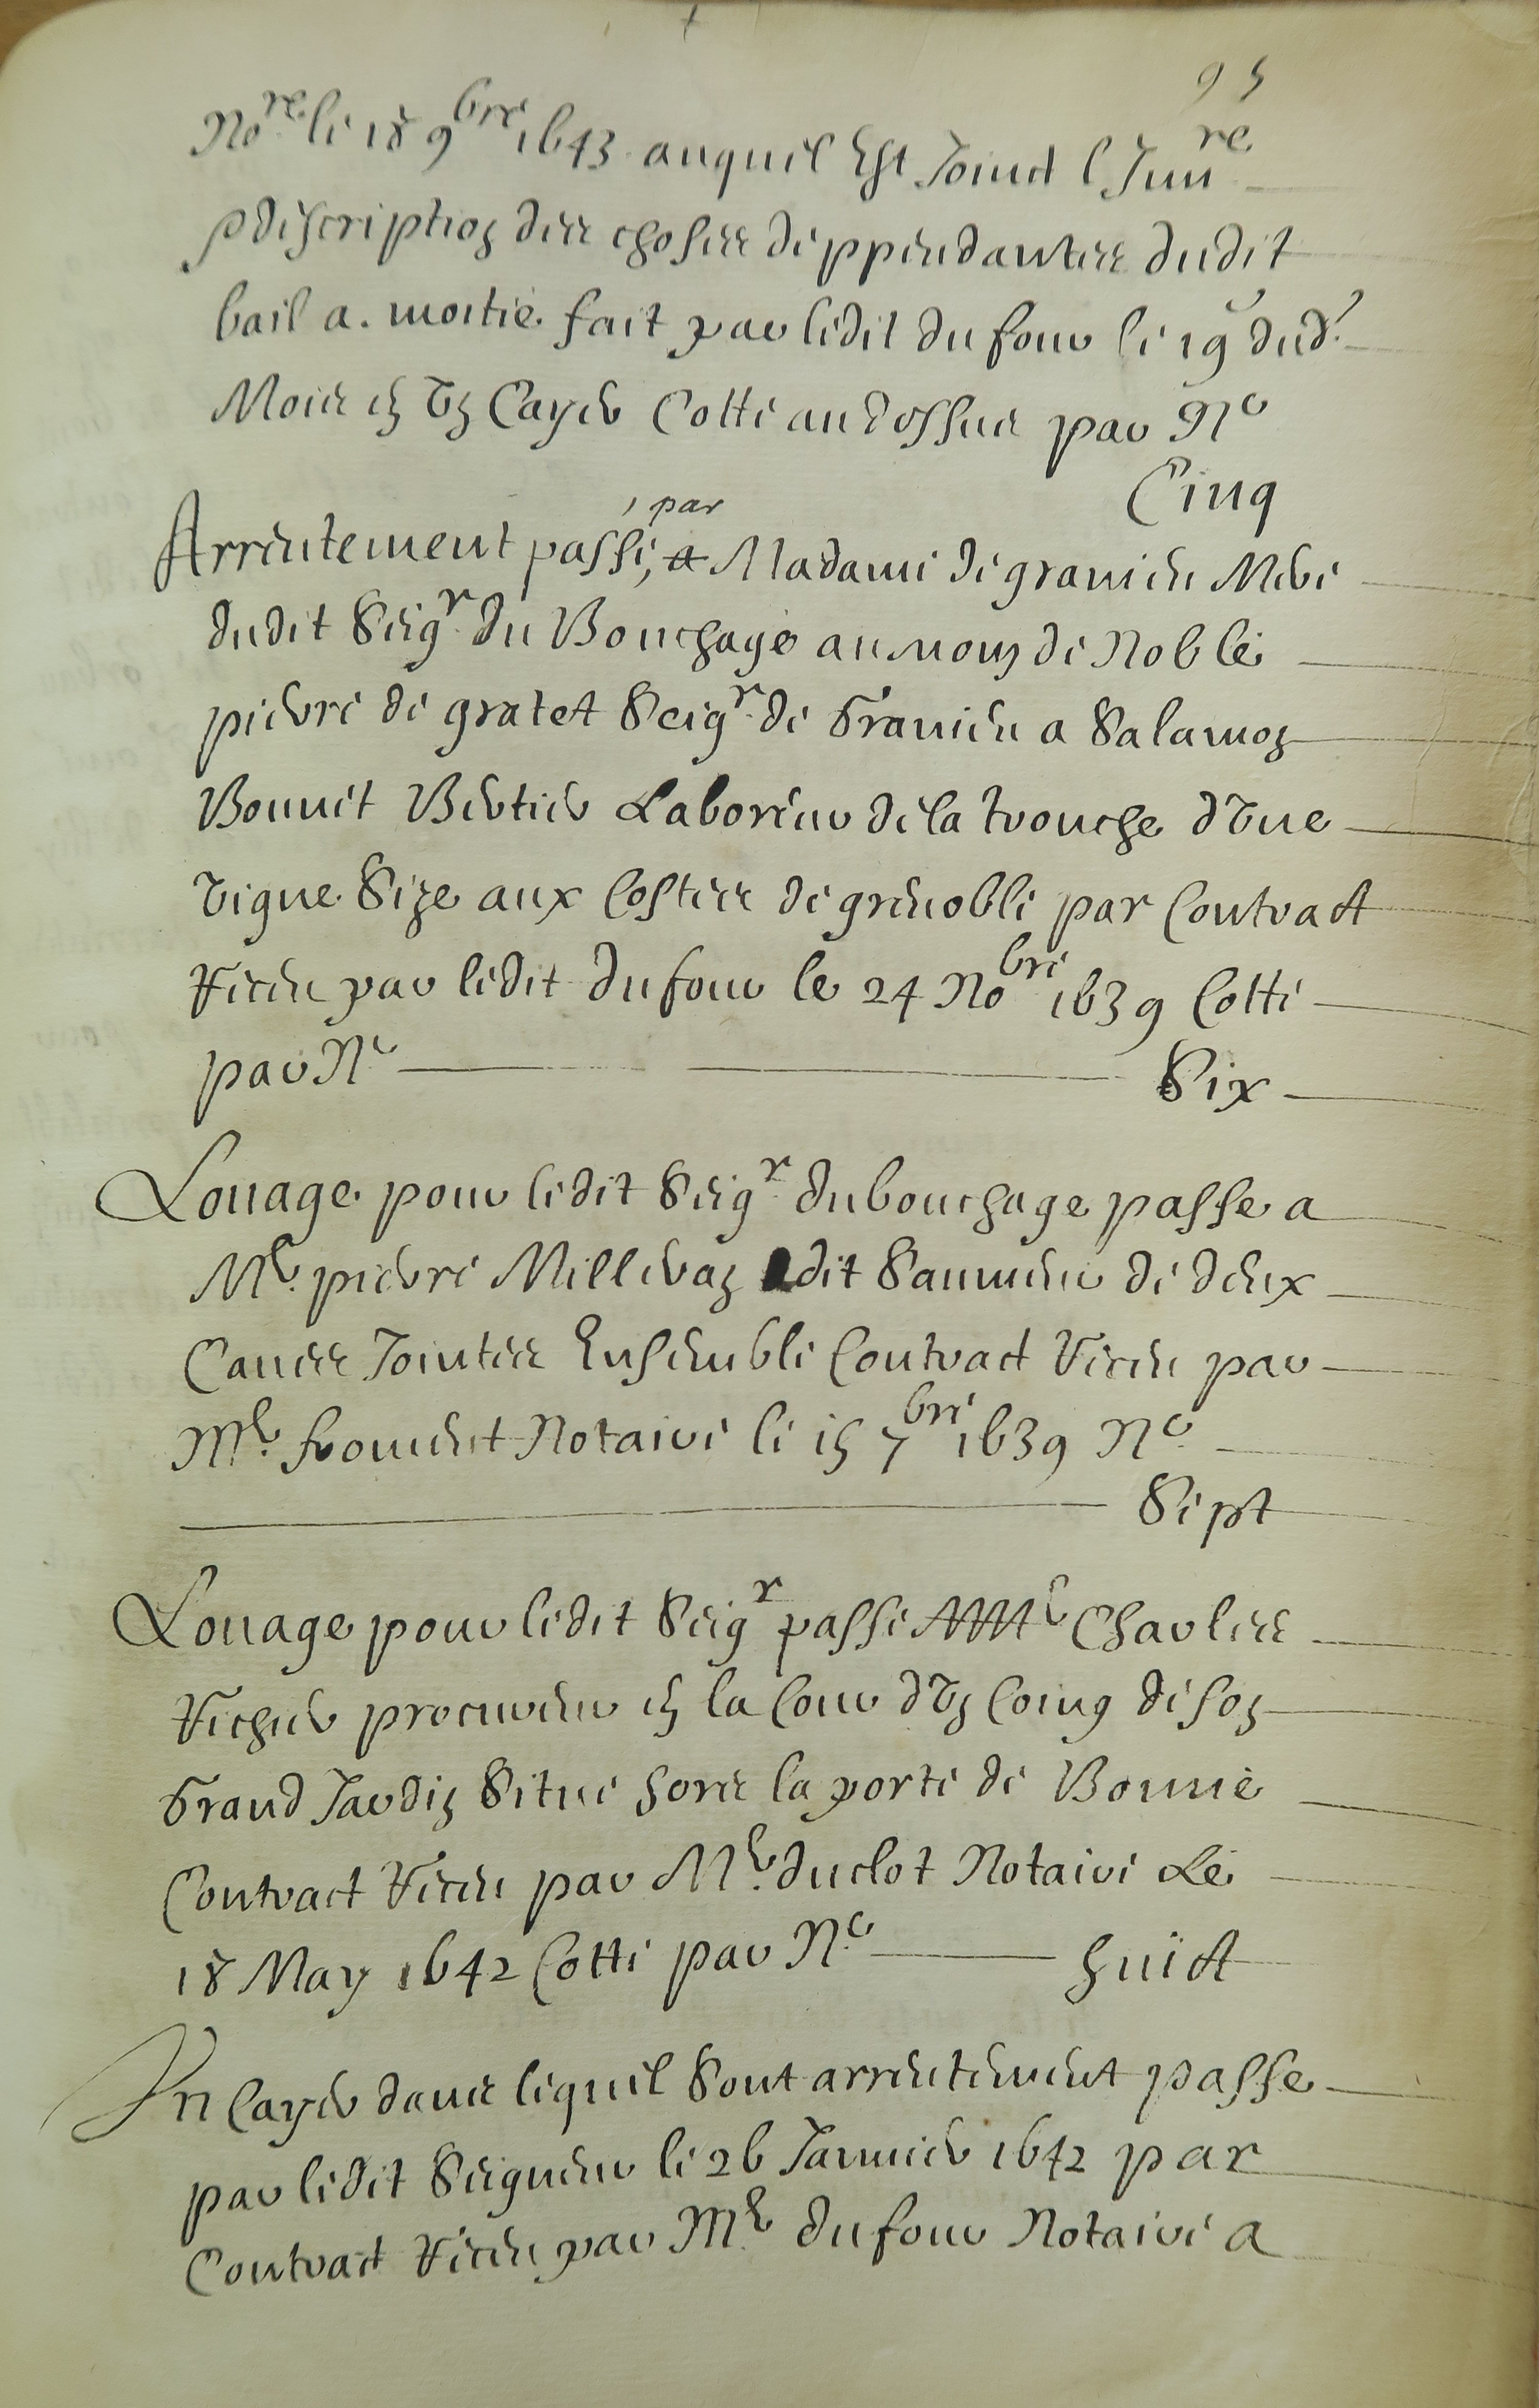 95
No.re le 18 9bre 1643 auquel Est Joinct l'Inu.re
& description des choses deppendantes dudit
bail a moitie fait par ledit dufour le 19e dud.
Mois en Vn Cayer Cotté au dossus par N.o
Cinq
Arrentement passé, par a Madame de granieu Mere
dudit Seigr du Bouchage au nom de Noble
pierre de gratet Seigr de Granieu a Salamon
Bonnet Bertier Laboreur de la tronche d'Vne
Vigne Size aux Costes de grenoble par Contract
Receu par ledit dufour le 24 Nobre 1639 Cotté
par N.o Six
Louage pour ledit Seigr du bouchage passe a
Me pierre Milleran dit Saunieu de deux
Caues Jointes Ensemble Contract Receu par
Me froment Notaire le 15 7bre 1639 N.o
Sept
Louage pour ledit Seigr passé A Me Charles
Richer procureur en la Cour d'Vn Coing de son
Grand Jardin Situé hors la porte de Bonne
Contract Receu par Me duclot Notaire Le
18 May 1642 Cotté par N.o huict
Vn Cayer dans lequel Sont arrentement passe
par ledit Seigneur le 26 Januier 1642 par
Contract Receu par Me dufour Notaire a